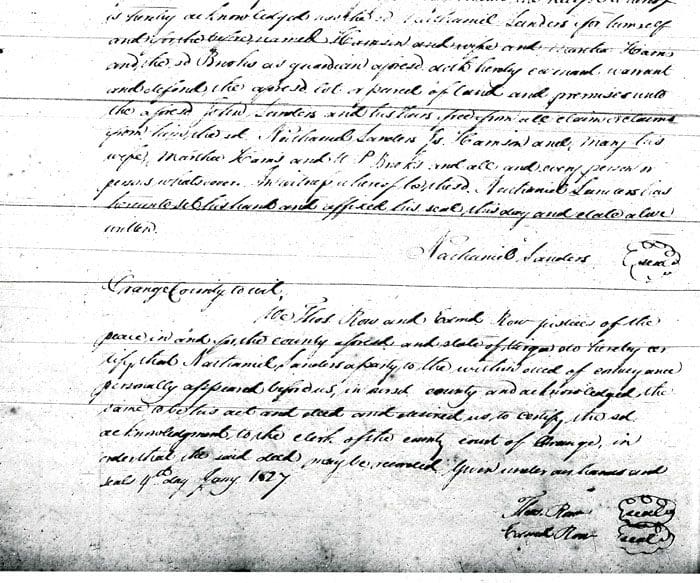 is hereby acknowledged and the sd Nathaniel Sanders for himself
and for the before named Hamson and wife and Martha Hams
and the sd Brooks as guardian aforesd doth hereby covenant warrant
and defend the aforesd lot a parcel of land and premises unto
the aforesd John Sanders and his heirs free from all claim or claims
from him the sd Nathaniel Sanders Js. Hamson and Mary his
wife, Martha Hams and H P Brooks and all and every person or
persons whatsoever. In witness whereof the sd. Nathaniel Sanders has
hereunto set his hand and affixed his seal, this day and date above
written.
Nathaniel Sanders Seal
Orange County to wit,
We Thos. Row and Exmd Row justices of the
peace in and for the county aforesd and state of Virga do hereby cer
tify that Nathaniel Sanders a party to the within deed of conveyance
personally appeared before us, in our county and acknowledged the
same to be his act and deed and desired us, to certify the sd
acknowledgment, to the clerk of the county court of Orange, in
order that the said deed may be recorded Given under our hands and
seals 4th day Jany 1827
Thos. Row Seal
Exmd Row Seal